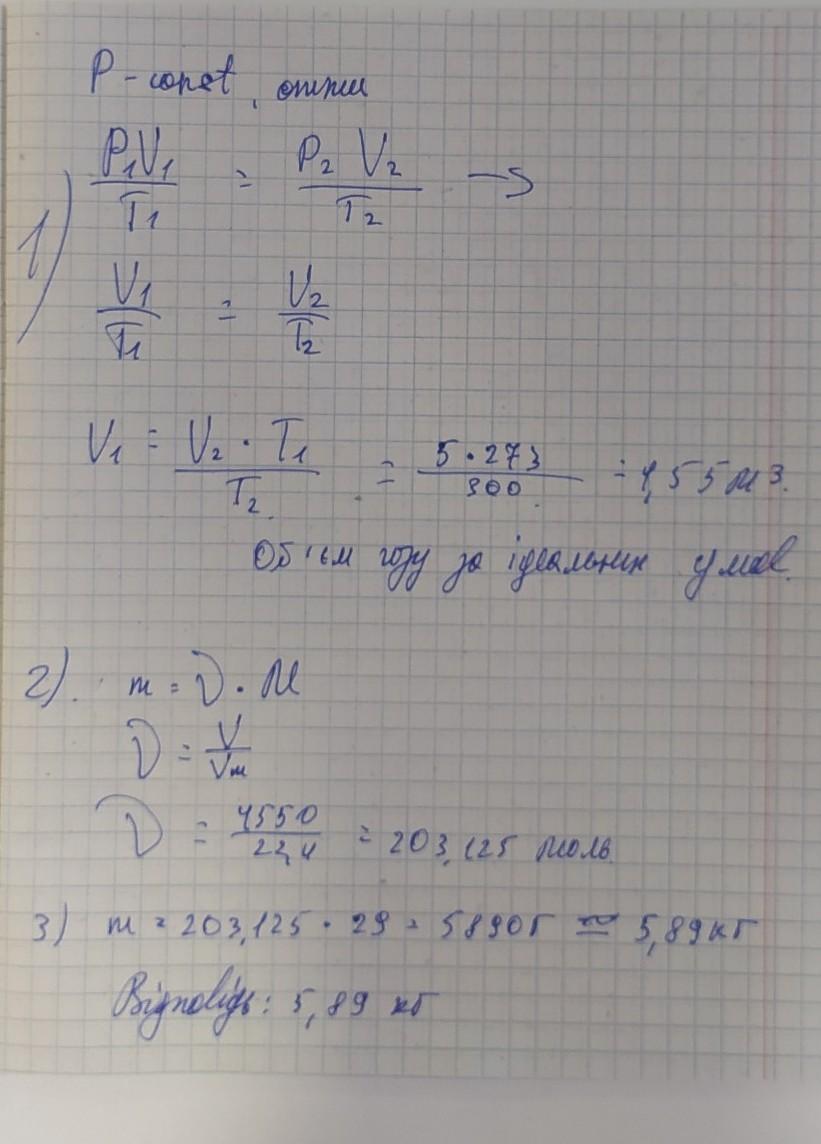 P - const, отже
1) P₁V₁/T₁ = P₂ V₂/T₂ →
V₁/T₁ = V₂/T₂
V₁ = V₂ · T₁/T₂ = 5 · 273/300 = 4,55 м³.
Об'єм газу за ідеальних умов.
2). m = ν · M
ν = V/Vm
ν = 4550/22,4 = 203,125 моль
3) m = 203,125 · 29 = 5890г ≈ 5,89кг
Відповідь: 5,89 кг